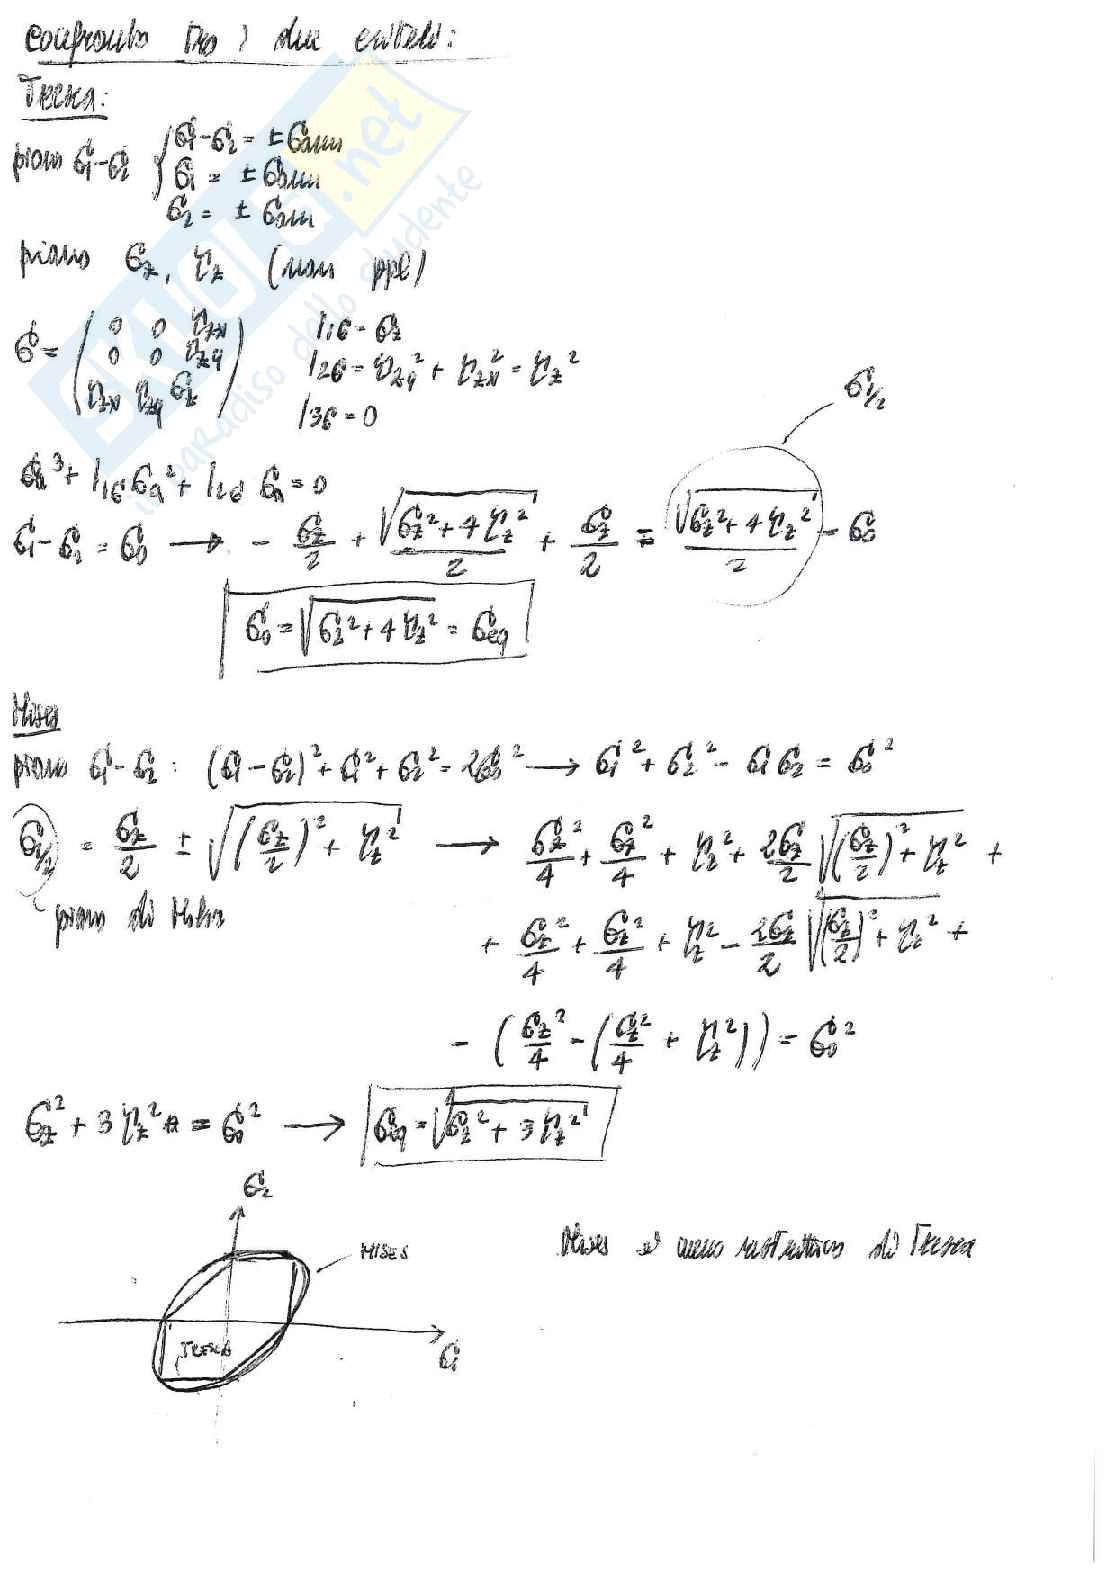 Confronto tra i due criteri:
Tresca:
piano σ1-σ2 { σ1-σ2 = ± σamm
σ1 = ± σamm
σ2 = ± σamm
piano σz, τz (non ppl)
σ = ( 0 0 τzx
0 0 τzy
τzx τzy σz )
I1σ = σz
I2σ = τzy² + τzx² = τz²
I3σ = 0
σn³ + I1σ σn² + I2σ σn = 0
σ1/2
σ1 - σ2 = σ0 → - σz/2 + √(σz² + 4τz²)/2 + σz/2 = √(σz² + 4τz²)/2 - σ0
σ0 = √(σz² + 4τz²) = σeq
Mises
piano σ1-σ2 : (σ1 - σ2)² + σ1² + σ2² = 2σ0² → σ1² + σ2² - σ1σ2 = σ0²
σ1/2 = σz/2 ± √((σz/2)² + τz²) → σz²/4 + σz²/4 + τz² + 2σz/2 √((σz/2)² + τz²) +
piano di Mohr
+ σz²/4 + σz²/4 + τz² - 2σz/2 √((σz/2)² + τz²) +
- (σz²/4 - (σz²/4 + τz²)) = σ0²
σz² + 3τz² = σ0² → σeq = √(σz² + 3τz²)
σ2
MISES
Mises è meno restrittivo di Tresca
TRESCA
σ1
SKUOLA.net
il paradiso dello studente